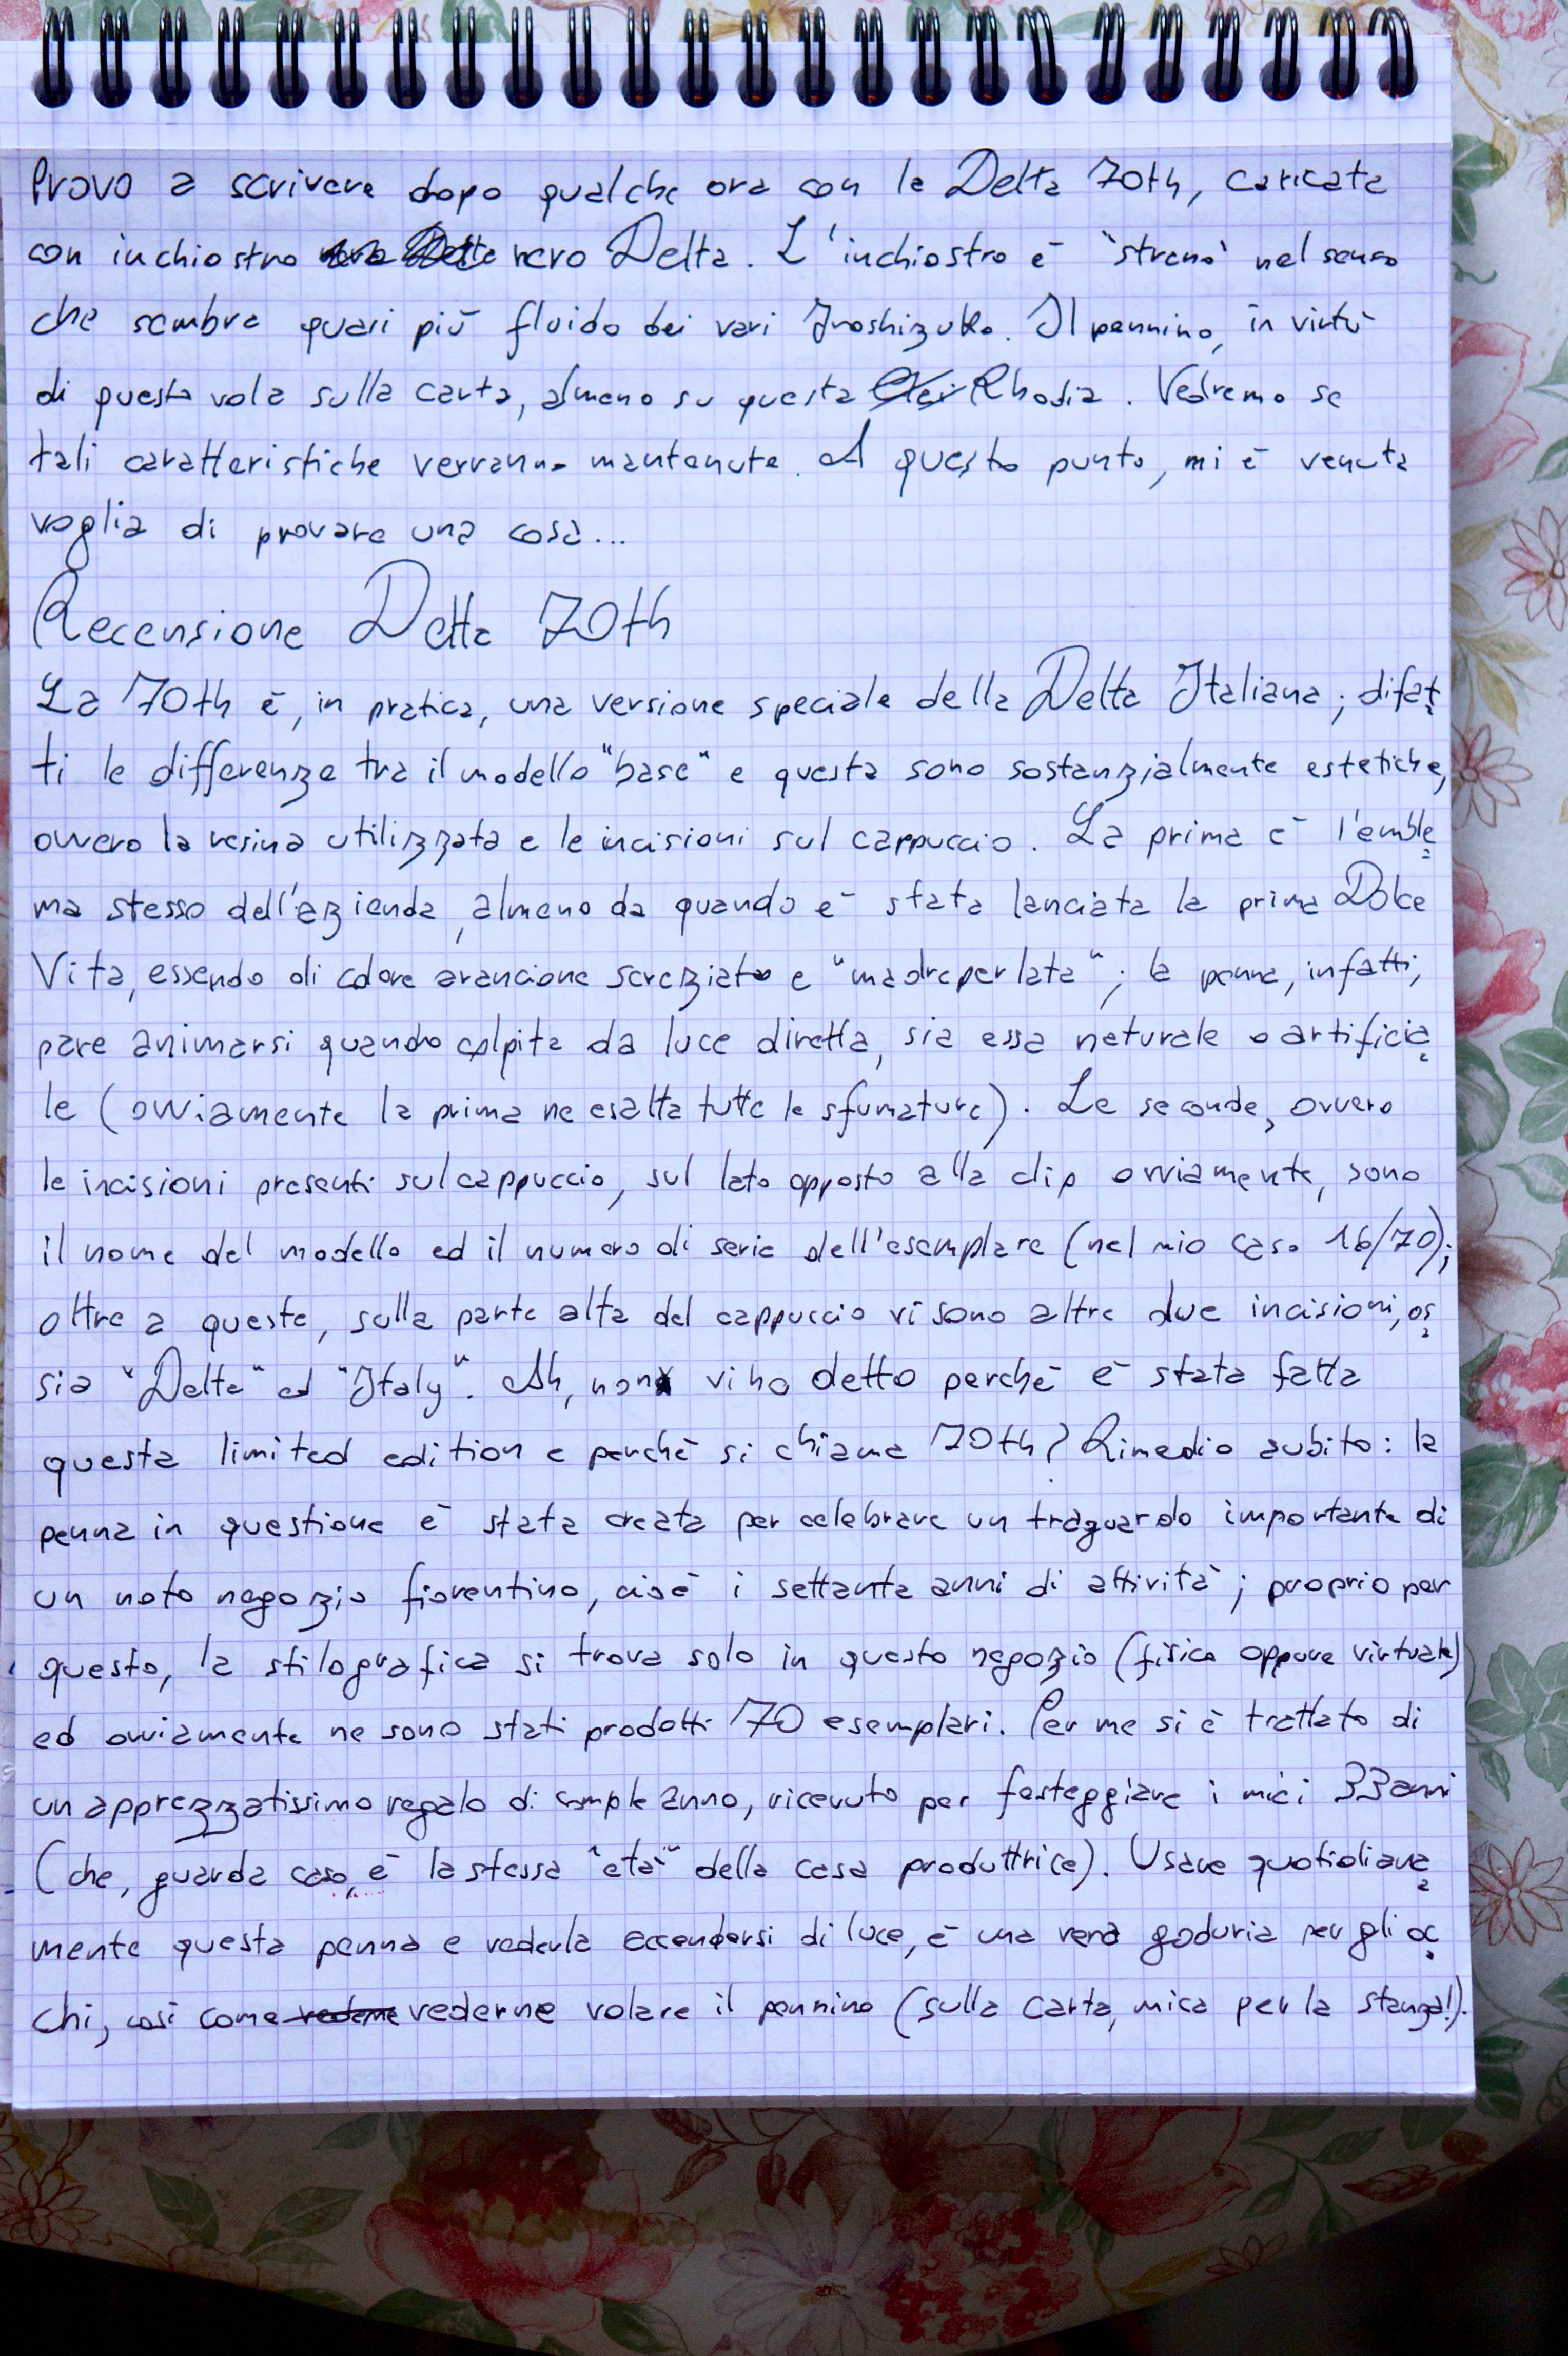 Provo a scrivere dopo qualche ora con la Delta 70th, caricata
con inchiostro nero Delta. L'inchiostro è "strano" nel senso
che sembra quasi più fluido dei vari Iroshizuku. Il pennino, in virtù
di questo vola sulla carta, almeno su questa Rhodia. Vedremo se
tali caratteristiche verranno mantenute. A questo punto, mi è venuta
voglia di provare una cosa...
Recensione Delta 70th
La 70th è, in pratica, una versione speciale della Delta Italiana; difat
ti le differenze tra il modello "base" e questa sono sostanzialmente estetiche,
ovvero la resina utilizzata e le incisioni sul cappuccio. La prima è l'emble
ma stesso dell'azienda, almeno da quando è stata lanciata la prima Dolce
Vita, essendo di colore arancione screziato e "madreperlata"; la penna, infatti,
pare animarsi quando colpita da luce diretta, sia essa naturale o artificia
le (ovviamente la prima ne esalta tutte le sfumature). Le seconde, ovvero
le incisioni presenti sul cappuccio, sul lato opposto alla clip ovviamente, sono
il nome del modello ed il numero di serie dell'esemplare (nel mio caso 16/70);
oltre a queste, sulla parte alta del cappuccio vi sono altre due incisioni, os
sia "Delta" ed "Italy". Ah, non vi ho detto perchè è stata fatta
questa limited edition e perchè si chiama 70th? Rimedio subito: la
penna in questione è stata creata per celebrare un traguardo importante di
un noto negozio fiorentino, cioè i settanta anni di attività; proprio per
questo, la stilografica si trova solo in questo negozio (fisico oppure virtuale)
ed ovviamente ne sono stati prodotti 70 esemplari. Per me si è trattato di
un apprezzatissimo regalo di compleanno, ricevuto per festeggiare i miei 33 anni
(che, guarda caso, è la stessa "età" della casa produttrice). Usare quotidiana
mente questa penna e vederla accendersi di luce, è una vera goduria per gli oc
chi, così come vederne vederne volare il pennino (sulla carta, mica per la stanza!).